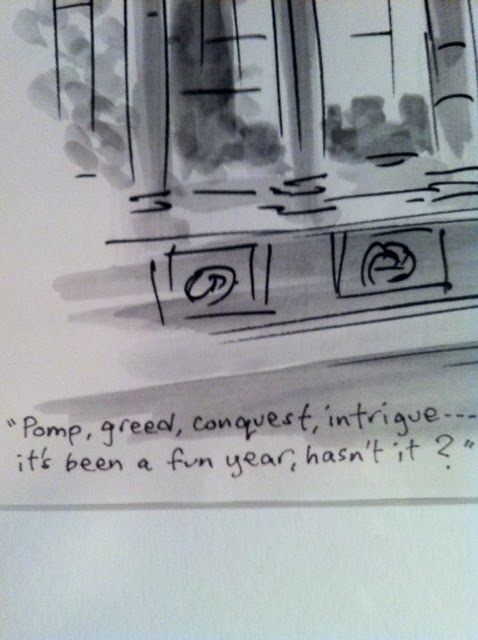 "Pomp, greed, conquest, intrigue---
it's been a fun year, hasn't it?"